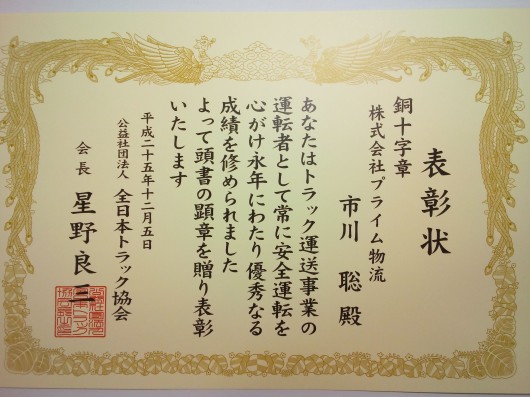 表彰状
銅十字章
株式会社プライム物流
市川 聡 殿
あなたはトラック運送事業の
運転者として常に安全運転を
心がけ永年にわたり優秀なる
成績を修められました
よって頭書の顕章を贈り表彰
いたします
平成二十五年十二月五日
公益社団法人 全日本トラック協会
会長 星野良三